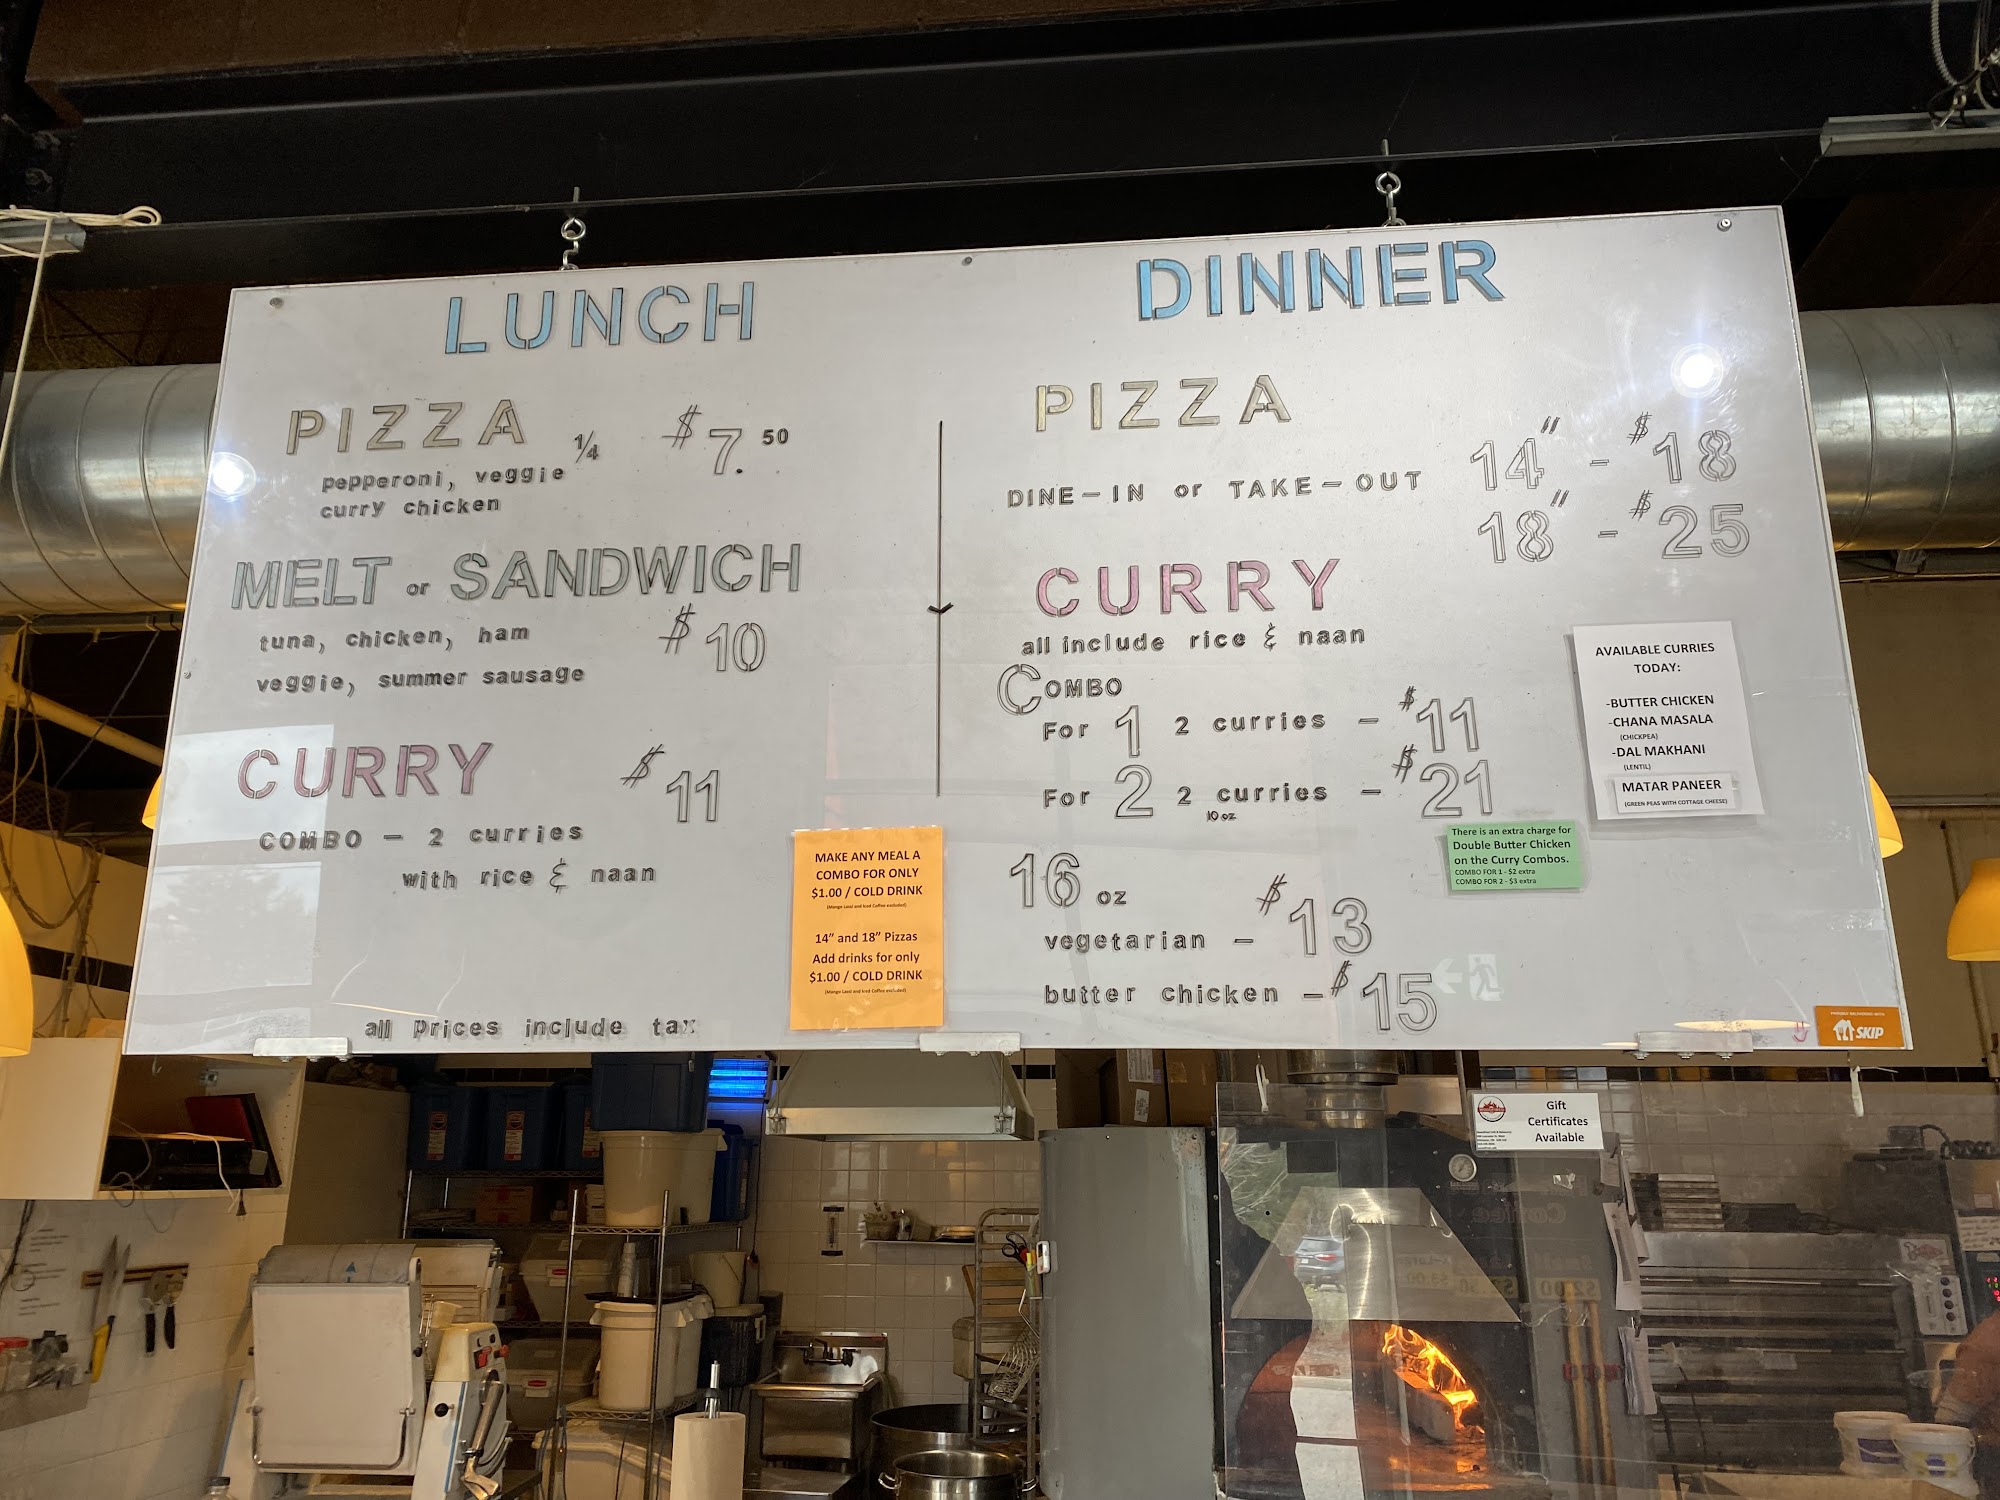 LUNCH
PIZZA 1/4 $7.50
pepperoni, veggie
curry chicken
MELT or SANDWICH
tuna, chicken, ham $10
veggie, summer sausage
CURRY $11
COMBO — 2 curries
with rice & naan
all prices include tax
MAKE ANY MEAL A
COMBO FOR ONLY
$1.00 / COLD DRINK
(Mango Lassi and Iced Coffee excluded)
14” and 18” Pizzas
Add drinks for only
$1.00 / COLD DRINK
(Mango Lassi and Iced Coffee excluded)
DINNER
PIZZA
DINE-IN or TAKE-OUT 14" - $18
18" - $25
CURRY
all include rice & naan
COMBO
For 1 2 curries - $11
For 2 2 curries - $21
10 oz
16 oz
vegetarian - $13
butter chicken - $15
AVAILABLE CURRIES
TODAY:
-BUTTER CHICKEN
-CHANA MASALA
(CHICKPEA)
-DAL MAKHANI
(LENTIL)
MATAR PANEER
(GREEN PEAS WITH COTTAGE CHEESE)
There is an extra charge for
Double Butter Chicken
on the Curry Combos.
COMBO FOR 1 - $2 extra
COMBO FOR 2 - $3 extra
SKIP
Gift
Certificates
Available